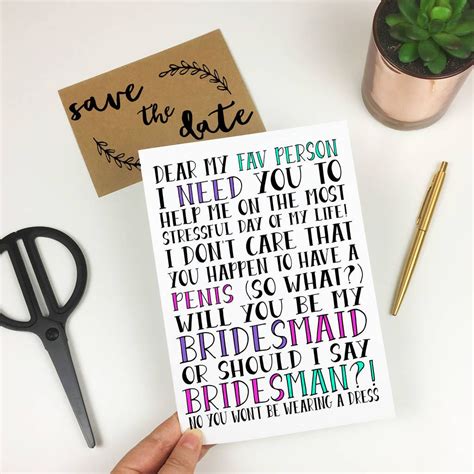 save
the
date
DEAR MY FAV PERSON
I NEED YOU TO
HELP ME ON THE MOST
STRESSFUL DAY OF MY LIFE!
I DON'T CARE THAT
YOU HAPPEN TO HAVE A
PENIS (SO WHAT?)
WILL YOU BE MY
BRIDESMAID
OR SHOULD I SAY
BRIDESMAN?!
NO YOU WON'T BE WEARING A DRESS